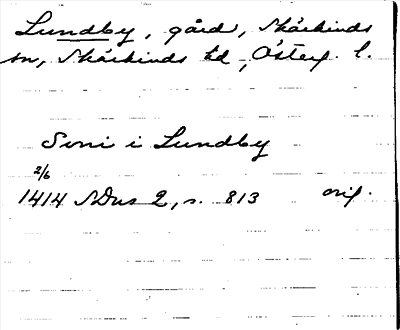 Lundby, gård, Skärkinds
sn, Skärkinds hd, Österg. l.
Soni i Lundby
2/6
1414 SDns 2, s. 813 orig.